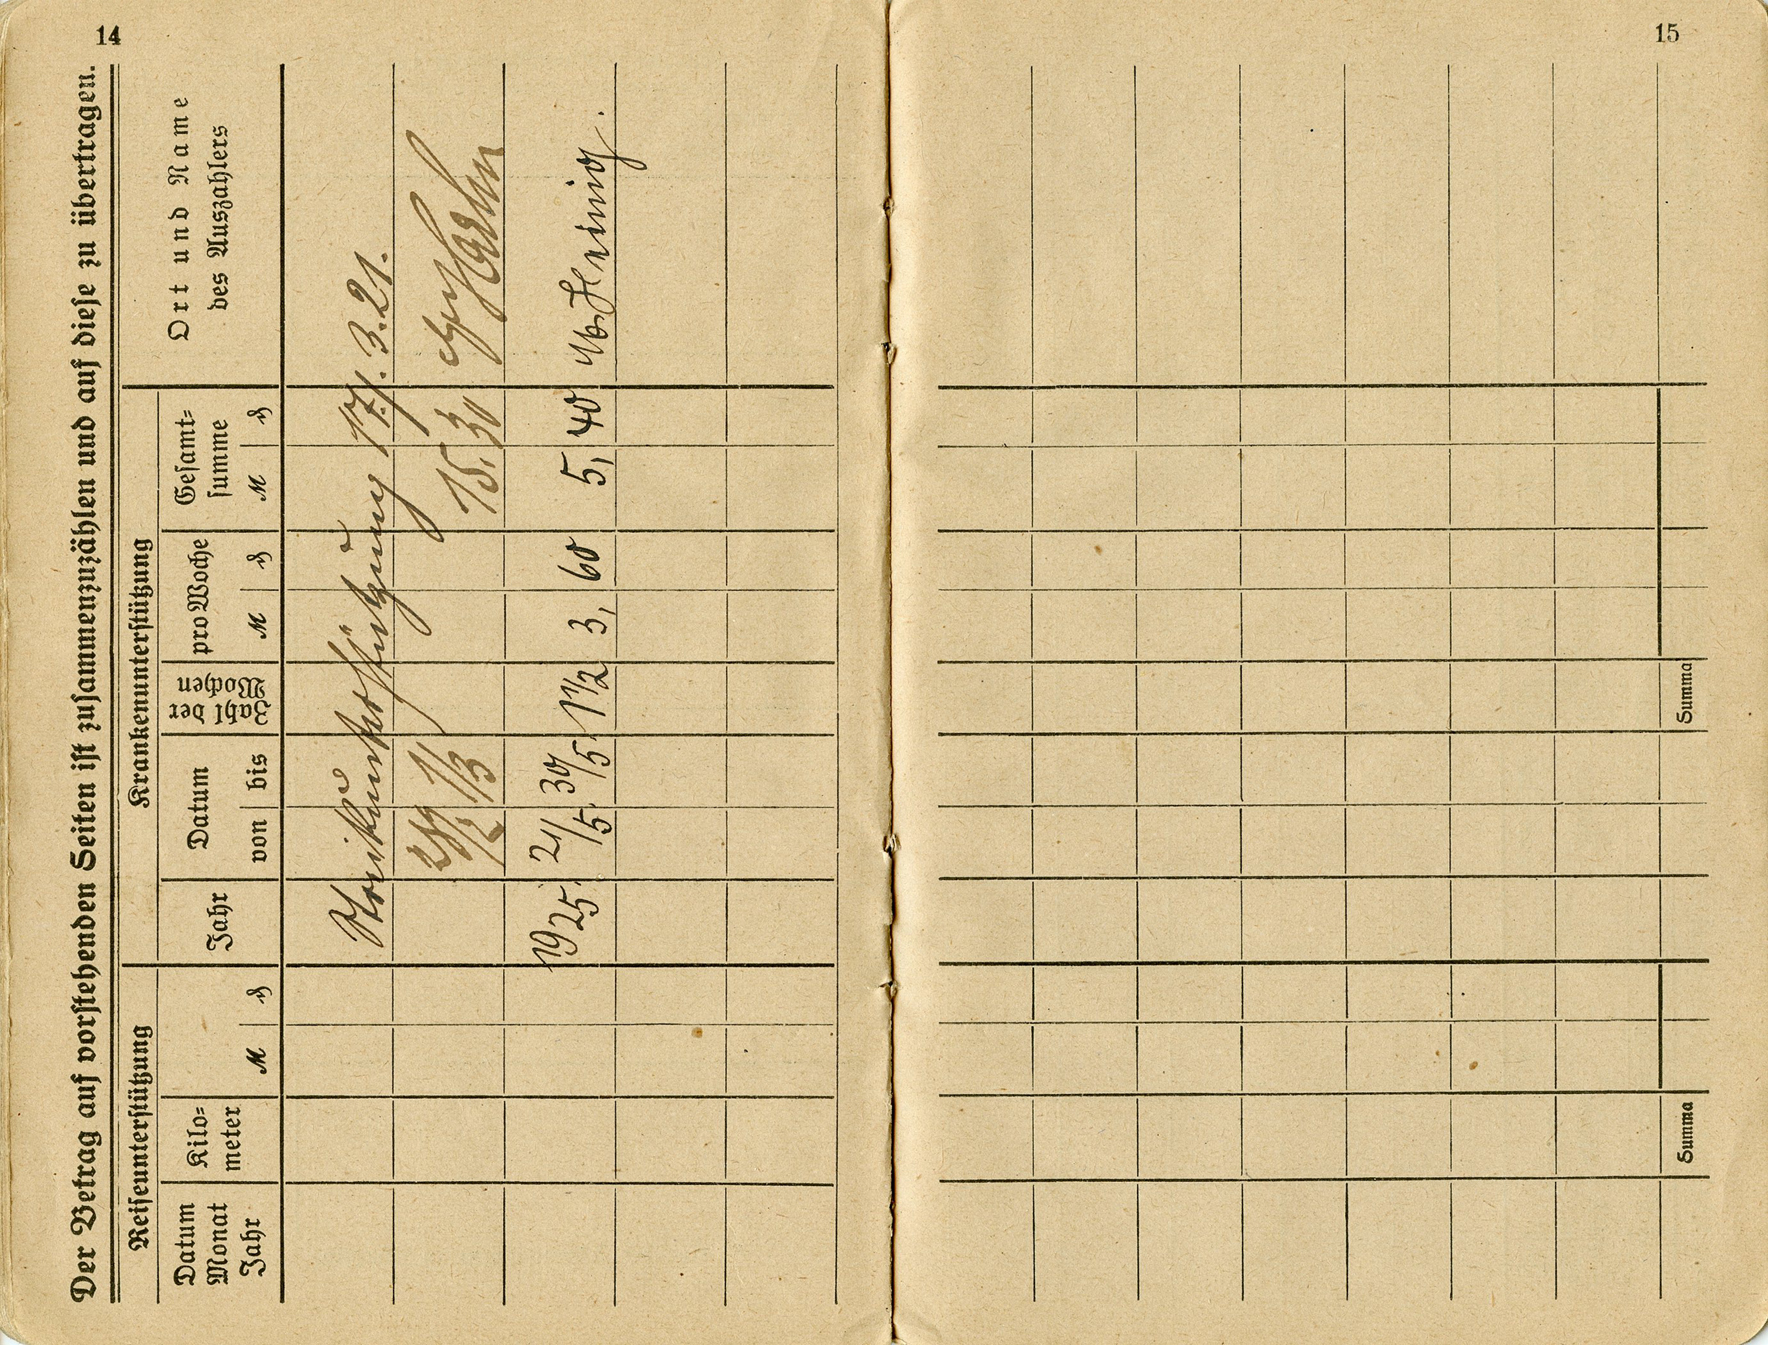 14
Der Betrag auf vorstehenden Seiten ist zusammenzuzählen und auf diese zu übertragen.
Reiseunterstützung
Krankenunterstützung
Ort und Name
des Auszahlers
Datum
Monat
Jahr
Kilo-
meter
M ₰
Jahr
Datum
von bis
Zahl der
Wochen
pro Woche
M ₰
Gesamt-
summe
M ₰
Streikunterstützung 17. 3. 21.
28/2 1/3 15.30 Hahn
1925. 21/5. 30/5. 1 1/2 3, 60 5, 40 Heinig.
15
Summa
Summa